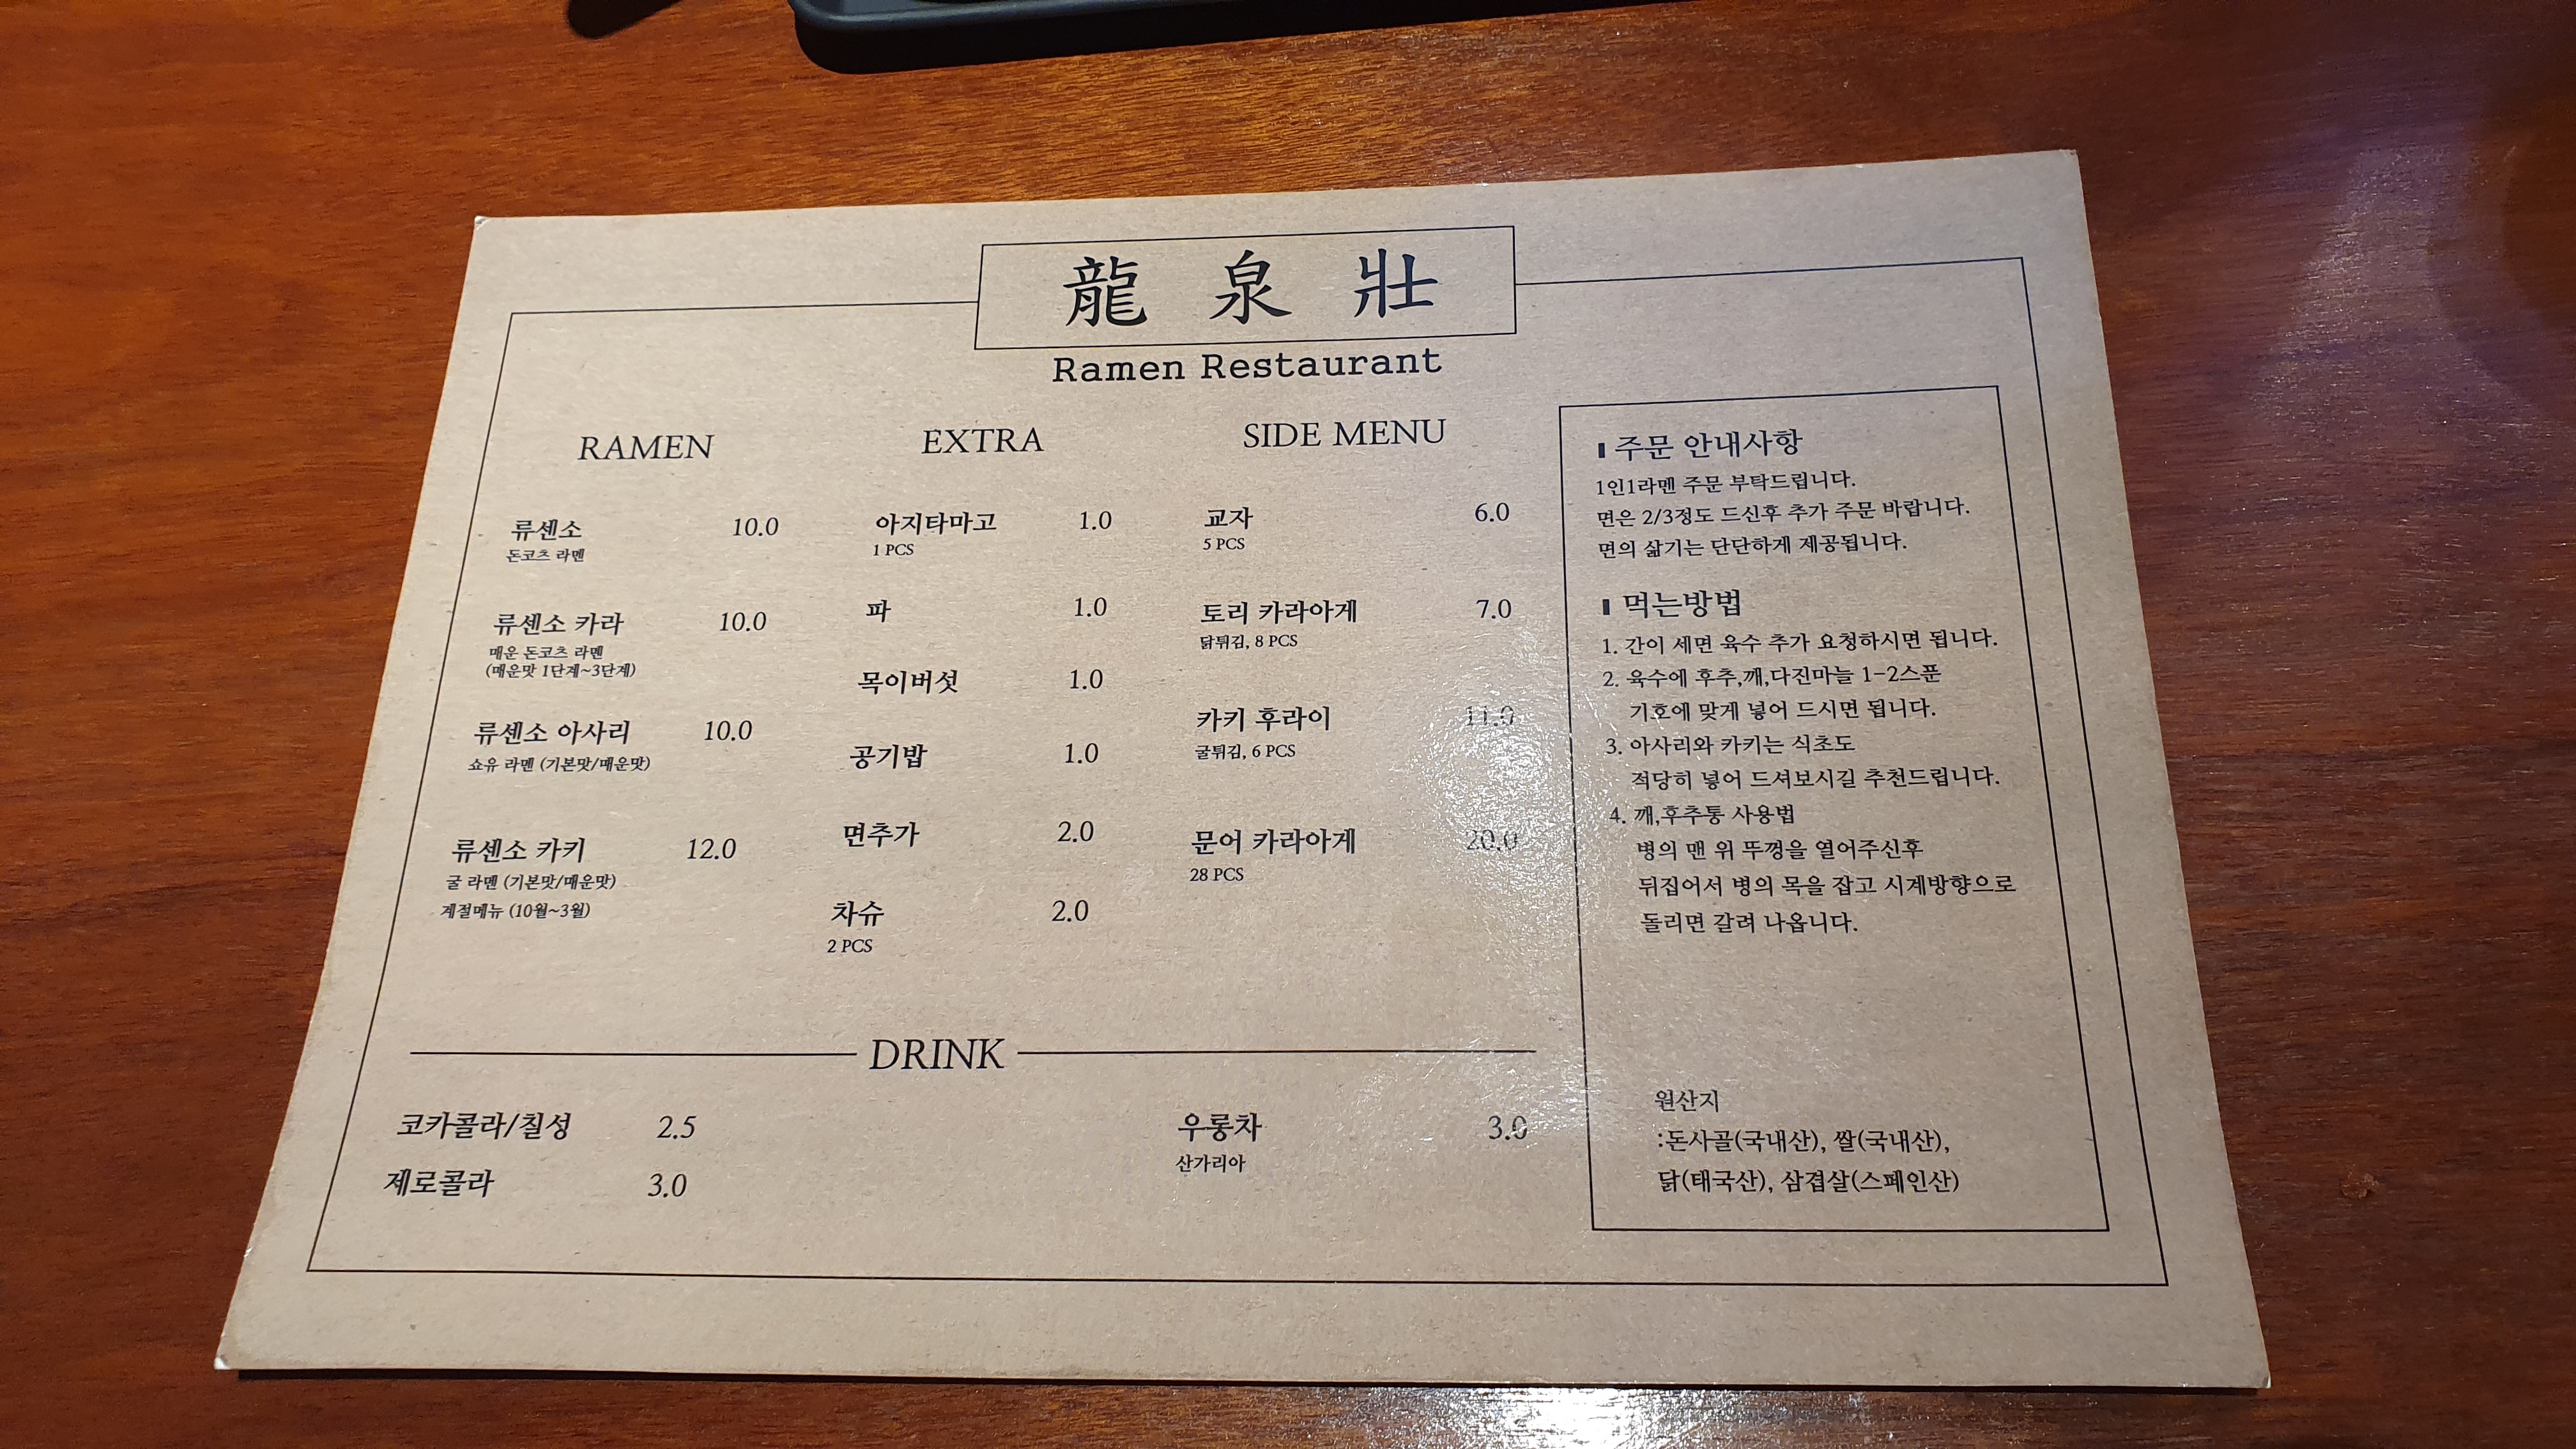 龍泉壯
Ramen Restaurant
RAMEN
류센소 10.0
돈코츠 라멘
류센소 카라 10.0
매운 돈코츠 라멘
(매운맛 1단계~3단계)
류센소 아사리 10.0
쇼유 라멘 (기본맛/매운맛)
류센소 카키 12.0
굴 라멘 (기본맛/매운맛)
계절메뉴 (10월~3월)
EXTRA
아지타마고 1.0
1 PCS
파 1.0
목이버섯 1.0
공기밥 1.0
면추가 2.0
차슈 2.0
2 PCS
SIDE MENU
교자 6.0
5 PCS
토리 카라아게 7.0
닭튀김, 8 PCS
카키 후라이 11.0
굴튀김, 6 PCS
문어 카라아게 20.0
28 PCS
DRINK
코카콜라/칠성 2.5
제로콜라 3.0
우롱차 3.0
산가리아
주문 안내사항
1인1라멘 주문 부탁드립니다.
면은 2/3정도 드신후 추가 주문 바랍니다.
면의 삶기는 단단하게 제공됩니다.
먹는방법
1. 간이 세면 육수 추가 요청하시면 됩니다.
2. 육수에 후추,깨,다진마늘 1-2스푼
기호에 맞게 넣어 드시면 됩니다.
3. 아사리와 카키는 식초도
적당히 넣어 드셔보시길 추천드립니다.
4. 깨,후추통 사용법
병의 맨 위 뚜껑을 열어주신후
뒤집어서 병의 목을 잡고 시계방향으로
돌리면 갈려 나옵니다.
원산지
:돈사골(국내산), 쌀(국내산),
닭(태국산), 삼겹살(스페인산)